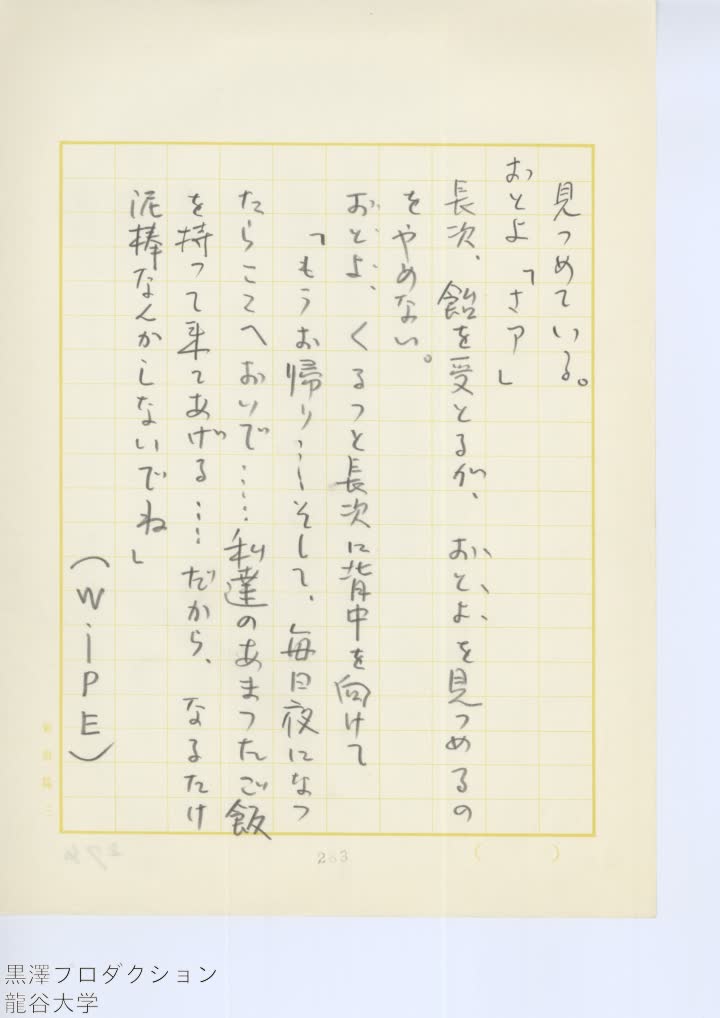 見つめている。
おとよ「さア」
長次、飴を受とるが、おとよを見つめるの
をやめない。
おとよ、くるつと長次に背中を向けて
「もうお帰り……そして、毎日夜になつ
たらここへおいで……私達のあまつたご飯
を持って来てあげる……だから、なるたけ
泥棒なんかしないでね」
(WiPE)
263
( )
黒澤プロダクション
龍谷大学